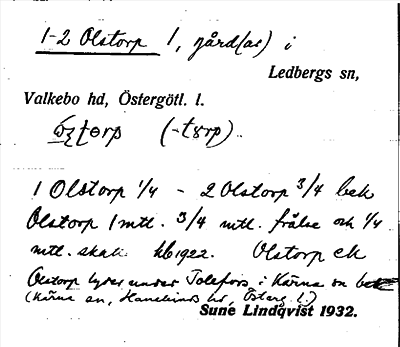 1-2 Olstorp 1, gård(ar) i
Ledbergs sn,
Valkebo hd, Östergötl. l.
(-tɤrp)
1 Olstorp 1/4 - 2 Olstorp 3/4 bek
Olstorp 1 mtl. 3/4 mtl. frälse och 1/4
mtl. skatte hb 1922. Olstorp ek
Olstorp lyder under Tolefors i Kärna sn
(Kärna sn, Hanekinds hd, Österg. l.)
Sune Lindqvist 1932.